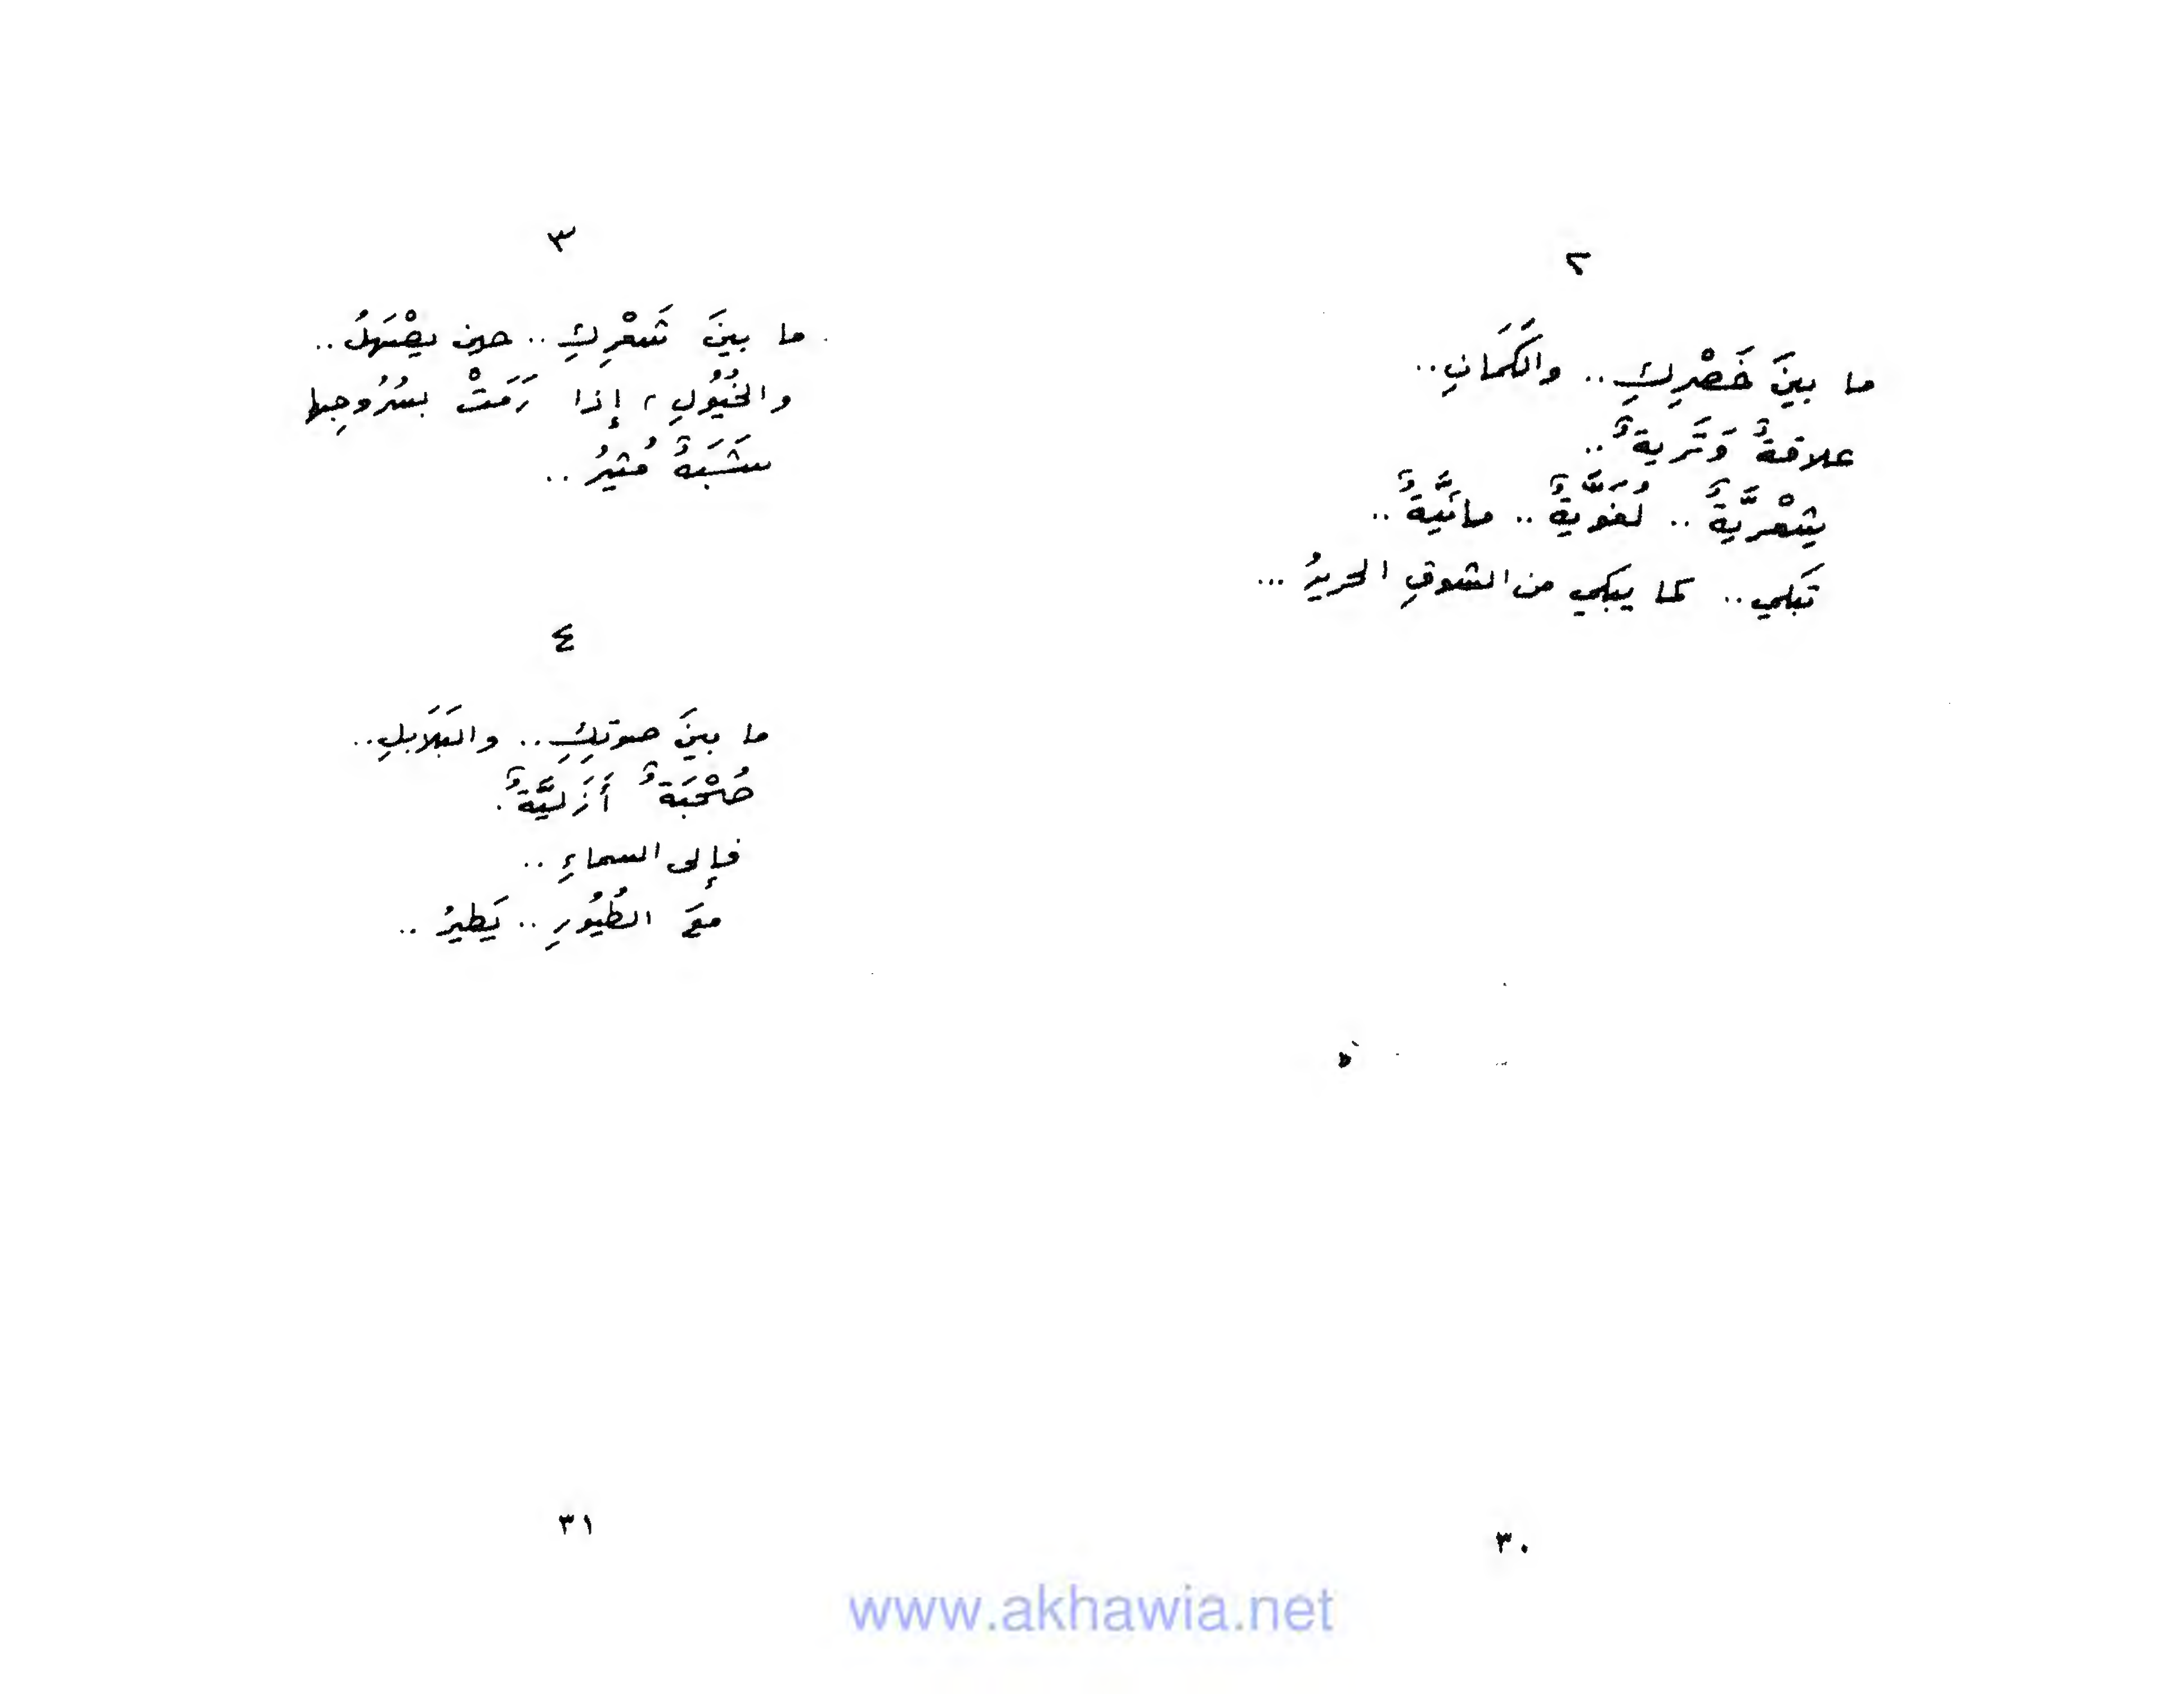 ٢
ما بينَ خَصْرِكِ .. والكَمَانِ ..
علاقةٌ وَتَريةٌ ..
شِعْريَّةٌ .. لُغَويَّةٌ .. مائيَّةٌ ..
تَبكي .. كما يبكي من الشوقِ الحريرُ ...
٣٠
٣
ما بينَ شَعْرِكِ .. حين يصْهَلُ ..
والخُيُولِ ، إذا رَمَتْ بسُرُوجِها
شَبَهٌ مُثيرُ ..
٤
ما بينَ صوتكِ .. والبَلَابلِ ..
صُحْبَةٌ أَزَليَّةٌ .
فإلى السماءِ ..
معَ الطُيُورِ .. يَطيرُ ..
٣١
www.akhawia.net